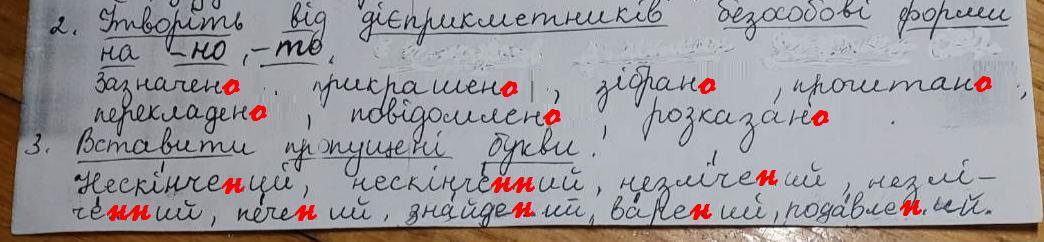 2. Утворіть від дієприкметників безособові форми
на -но, -то.
Зазначено, прикрашено, зібрано, прочитано,
перекладено, повідомлено, розказано.
3. Вставити пропущені букви.
Нескінчений, нескінченний, незлічений, незлі-
ченний, печений, знайдений, варений, подавлений.